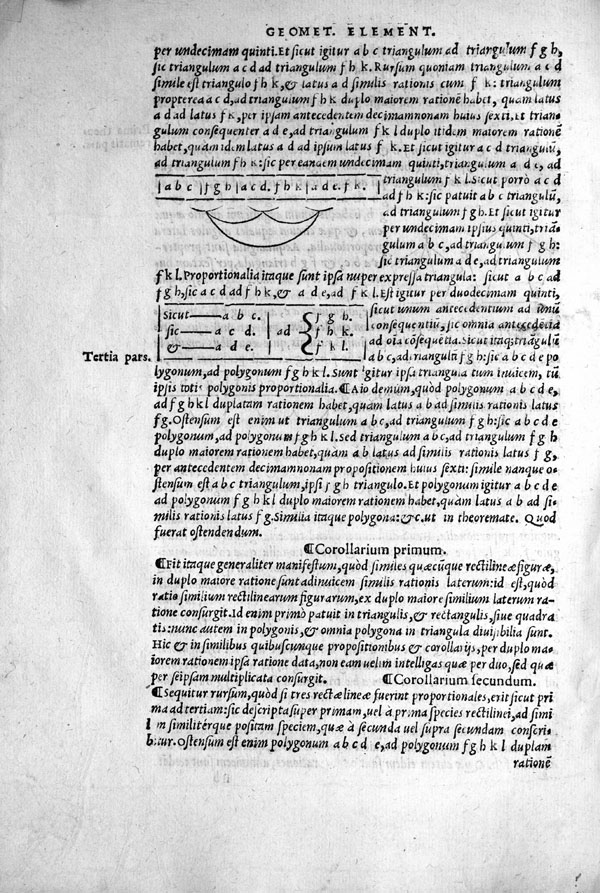 GEOMET. ELEMENT.
per undecimam quinti. Et sicut igitur a b c triangulum ad triangulum f g h,
sic triangulum a c d ad triangulum f h k. Rursum quoniam triangulum a c d
simile est triangulo f h k, & latus a d similis rationis cum f k: triangulum
propterea a c d, ad triangulum f h k duplo maiorem rationē habet, quam latus
a d ad latus f k, per ipsam antecedentem decimamnonam huius sexti. Et trian-
gulum consequenter a d e, ad triangulum f k l duplo itidem maiorem rationē
habet, quam idem latus a d ad ipsum latus f k. Et sicut igitur a c d triangulū,
ad triangulum f h k: sic per eandem undecimam quinti, triangulum a d e, ad
triangulum f k l. Sicut porrò a c d
| a b c | f g h | a c d. f h k. | a d e. f k. |
ad f h k: sic patuit a b c triangulū,
ad triangulum f g h. Et sicut igitur
per undecimam ipsius quinti, trian-
gulum a b c, ad triangulum f g h:
sic triangulum a d e, ad triangulum
f k l. Proportionalia itaque sunt ipsa nuper expressa triangula: sicut a b c ad
f g h, sic a c d ad f h k, & a d e, ad f k l. Est igitur per duodecimam quinti,
sicut unum antecedentium ad unū
Sicut—— a b c. | | f g h.
consequentiū, sic omnia antecedētia
sic—— a c d. | ad | f h k.
ad oīa cōsequētia. Sicut itaq; triāgulū
&—— a d e. | | f k l.
Tertia pars.
a b c, ad triangulū f g h: sic a b c d e po
lygonum, ad polygonum f g h k l. Sunt igitur ipsa triangula tum inuicem, tū
ipsis totis polygonis proportionalia. ¶Aio demum, quòd polygonum a b c d e,
ad f g h k l duplatam rationem habet, quam latus a b ad similis rationis latus
f g. Ostensum est enim ut triangulum a b c, ad triangulum f g h: sic a b c d e
polygonum, ad polygonum f g h k l. Sed triangulum a b c, ad triangulum f g h
duplo maiorem rationem habet, quàm a b latus ad similis rationis latus f g,
per antecedentem decimamnonam propositionem huius sexti: simile nanque o-
stensum est a b c triangulum, ipsi f g h triangulo. Et polygonum igitur a b c d e
ad polygonum f g h k l duplo maiorem rationem habet, quàm latus a b ad si-
milis rationis latus f g. Similia itaque polygona: & c. ut in theoremate. Quod
fuerat ostendendum.
¶Corollarium primum.
¶Fit itaque generaliter manifestum, quòd similes quæcūque rectilineæ figuræ,
in duplo maiore ratione sunt adinuicem similis rationis laterum: id est, quòd
ratio similium rectilinearum figurarum, ex duplo maiore similium laterum ra-
tione consurgit. Id enim primò patuit in triangulis, & rectangulis, siue quadra
tis: nunc autem in polygonis, & omnia polygona in triangula diuisibilia sunt.
Hic & in similibus quibuscunque propositionibus & corollarijs, per duplo ma-
iorem rationem ipsa ratione data, non eam uelim intelligas quæ per duo, sed quæ
per seipsam multiplicata consurgit. ¶Corollarium secundum.
¶Sequitur rursum, quòd si tres rectæ lineæ fuerint proportionales, erit sicut pri
ma ad tertiam: sic descripta super primam, uel à prima species rectilinei, ad simi
lem similitérque positam speciem, quæ à secunda uel supra secundam conscri-
bitur. Ostensum est enim polygonum a b c d e, ad polygonum f g h k l duplam
rationē